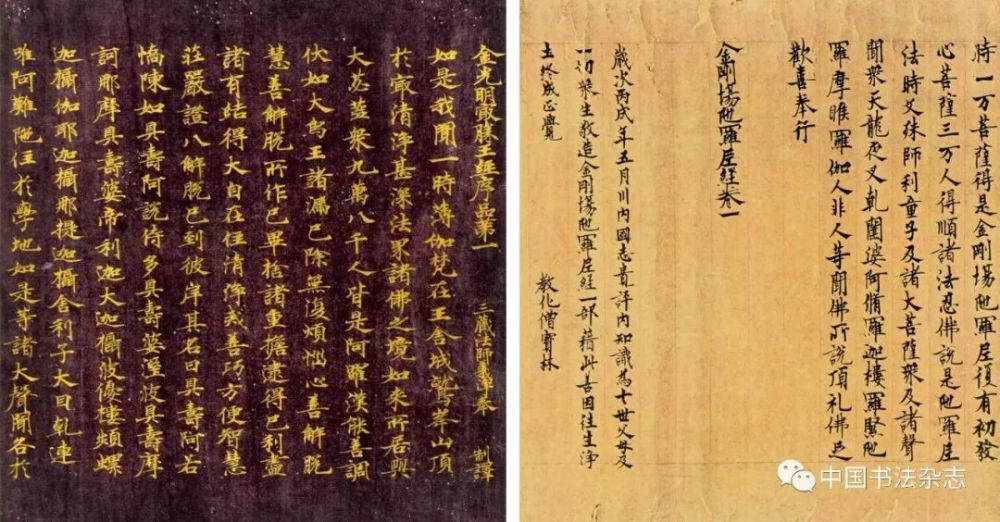 金光明冣勝王經序品第一 三藏法師義淨奉 制譯
如是我聞一時薄伽梵在王舍城鷲峯山頂
於冣清淨甚深法界諸佛之境如來所居與
大苾蒭衆九萬八千人皆是阿羅漢能善調
伏如大象王諸漏已除無復煩惱心善解脫
慧善解脫所作已畢捨諸重擔逮得已利盡
諸有結得大自在住清淨戒善巧方便智慧
莊嚴證八解脫已到彼岸其名曰具壽阿若
憍陳如具壽阿說侍多具壽婆溼波具壽摩
訶那摩具壽婆帝利迦大迦攝波優樓頻螺
迦攝伽耶迦攝那提迦攝舍利子大目乹連
唯阿難陁住於學地如是等諸大聲聞各於
時一万菩薩得是金剛場陁羅尼復有初發
心菩薩三万人得順諸法忍佛說是陁羅尼
法時文殊師利童子及諸大菩薩衆及諸聲
聞衆天龍夜叉乹闥婆阿脩羅迦樓羅緊陁
羅摩睺羅伽人非人等聞佛所說頂礼佛足
歡喜奉行
金剛場陁羅尼經卷一
歲次丙戌年五月川內國志貴評內知識為七世父母及
一切衆生敬造金剛場陁羅尼経一部藉此善因往生淨
土終成正覺
教化僧寶林
中国书法杂志